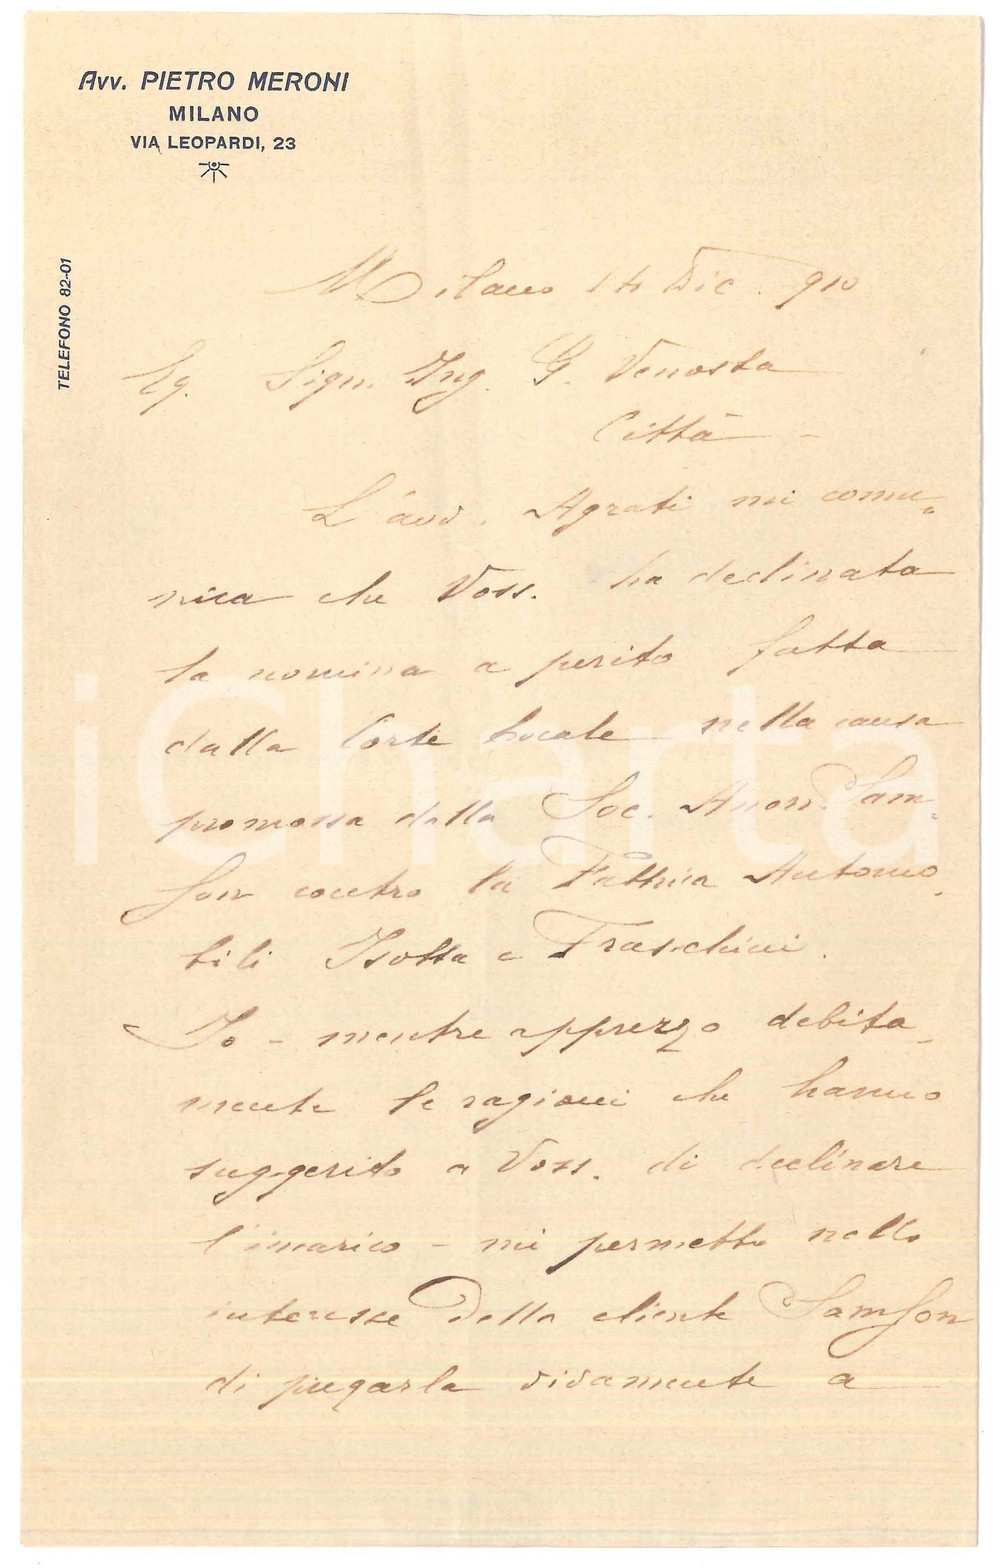 Avv. PIETRO MERONI
MILANO
VIA LEOPARDI, 23
TELEFONO 82-01
Milano 14 Dic. 910
Eg. Sign. Ing. G. Venosta
Città -
L'avv. Agrati mi comu=
nica che Voss. ha declinata
la nomina a perito fatta
dalla Corte locale nella causa
promossa dalla Soc. Anon. Sam-
son contro la Fabbrica Automo-
bili Isotta e Fraschini.
Io - mentre apprezzo debita-
mente le ragioni che hanno
suggerito a Voss. di declinare
l'incarico - mi permetto nello
interesse della cliente Samson
di pregarla vivamente a
iCharta